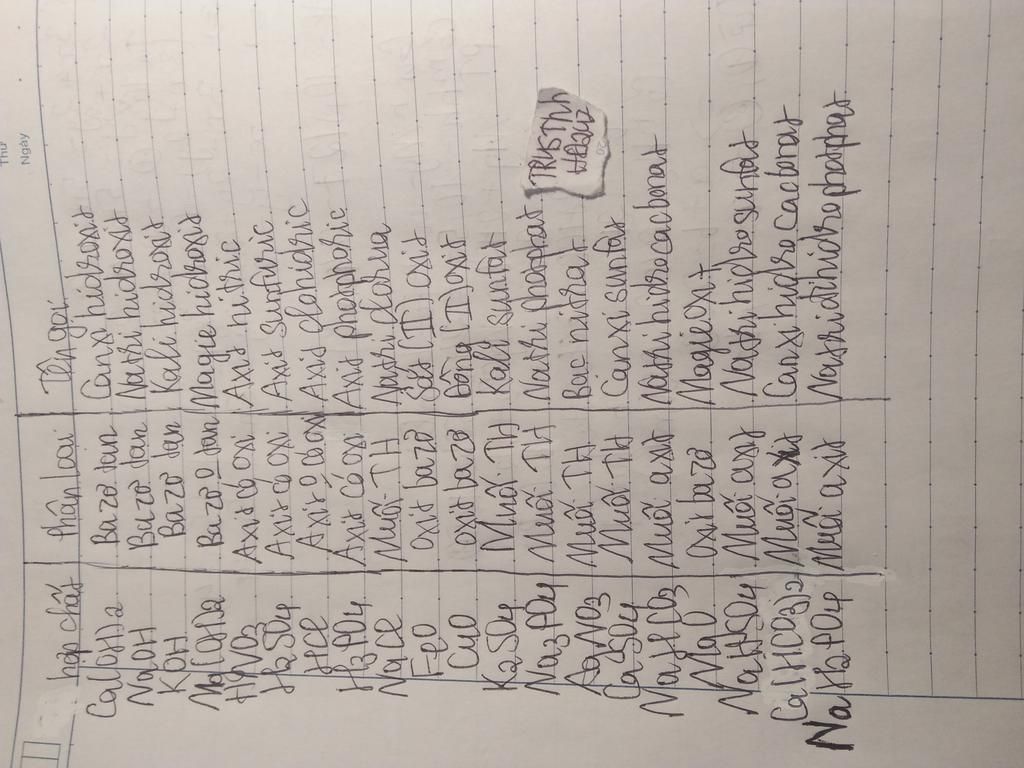 Thứ
Ngày
hợp chất phân loại Tên gọi
Ca(OH)2 Bazơ tan Canxi hidroxit
NaOH Bazơ tan Natri hidroxit
KOH Bazơ tan Kali hidroxit
Mg(OH)2 Bazơ 0 tan Magie hidroxit
HNO3 Axit có oxi Axit nitric
H2SO4 Axit có oxi Axit sunfiric
HCl Axit 0 có oxi Axit clohidric
H3PO4 Axit có oxi Axit photphoric
NaCl Muối-TH Natri clorua
FeO oxit bazơ Sắt (II) oxit
CuO oxit bazơ Đồng (II) oxit
K2SO4 Muối-TH Kali sunfat
Na3PO4 Muối-TH Natri photphat
AgNO3 Muối TH Bạc nitrat
CaSO4 Muối-TH Canxi sunfat
NaHCO3 Muối axit Natri hidrocacbonat
MgO Oxi bazơ Magie oxit
NaHSO4 Muối axit Natri hidro sunfat
Ca(HCO3)2 Muối axit Canxi hidro cacbonat
NaH2PO4 Muối axit Natri đihidrophotphat
TRUSTthh
HD3UZ